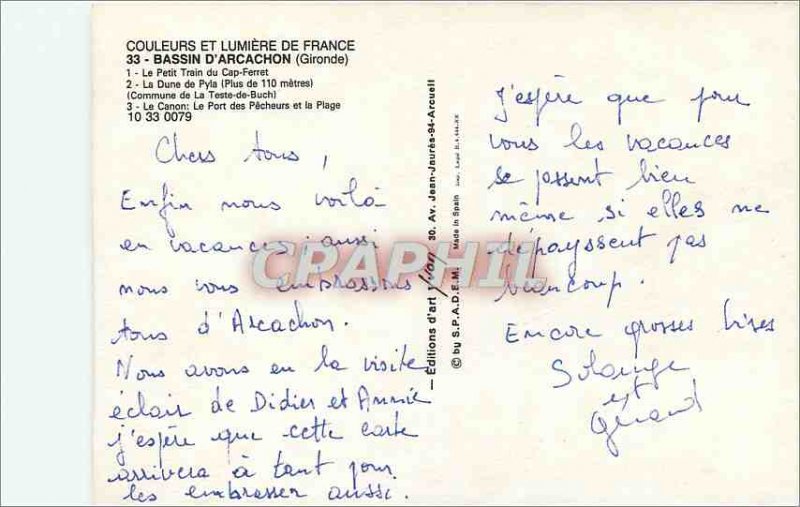 COULEURS ET LUMIÈRE DE FRANCE
33 - BASSIN D'ARCACHON (Gironde)
1 - Le Petit Train du Cap-Ferret
2 - La Dune de Pyla (Plus de 110 mètres)
(Commune de La Teste-de-Buch)
3 - Le Canon: Le Port des Pêcheurs et la Plage
10 33 0079
Chers tous,
Enfin nous voilà
en vacances, aussi
nous vous embrassons
tous d'Arcachon.
Nous avons eu la visite
éclair de Didier et Annie
j'espère que cette carte
arrivera à tant pour
les embrasser aussi.
— Editions d'art yvon 30. Av. Jean-Jaurès-94-Arcueil
© by S.P.A.D.E.M. Made in Spain
CPAPHIL
J'espère que pour
vous les vacances
se passent bien
même si elles ne
dépayssent pas
beaucoup.
Encore grosses bises
Solange
et
Gérard